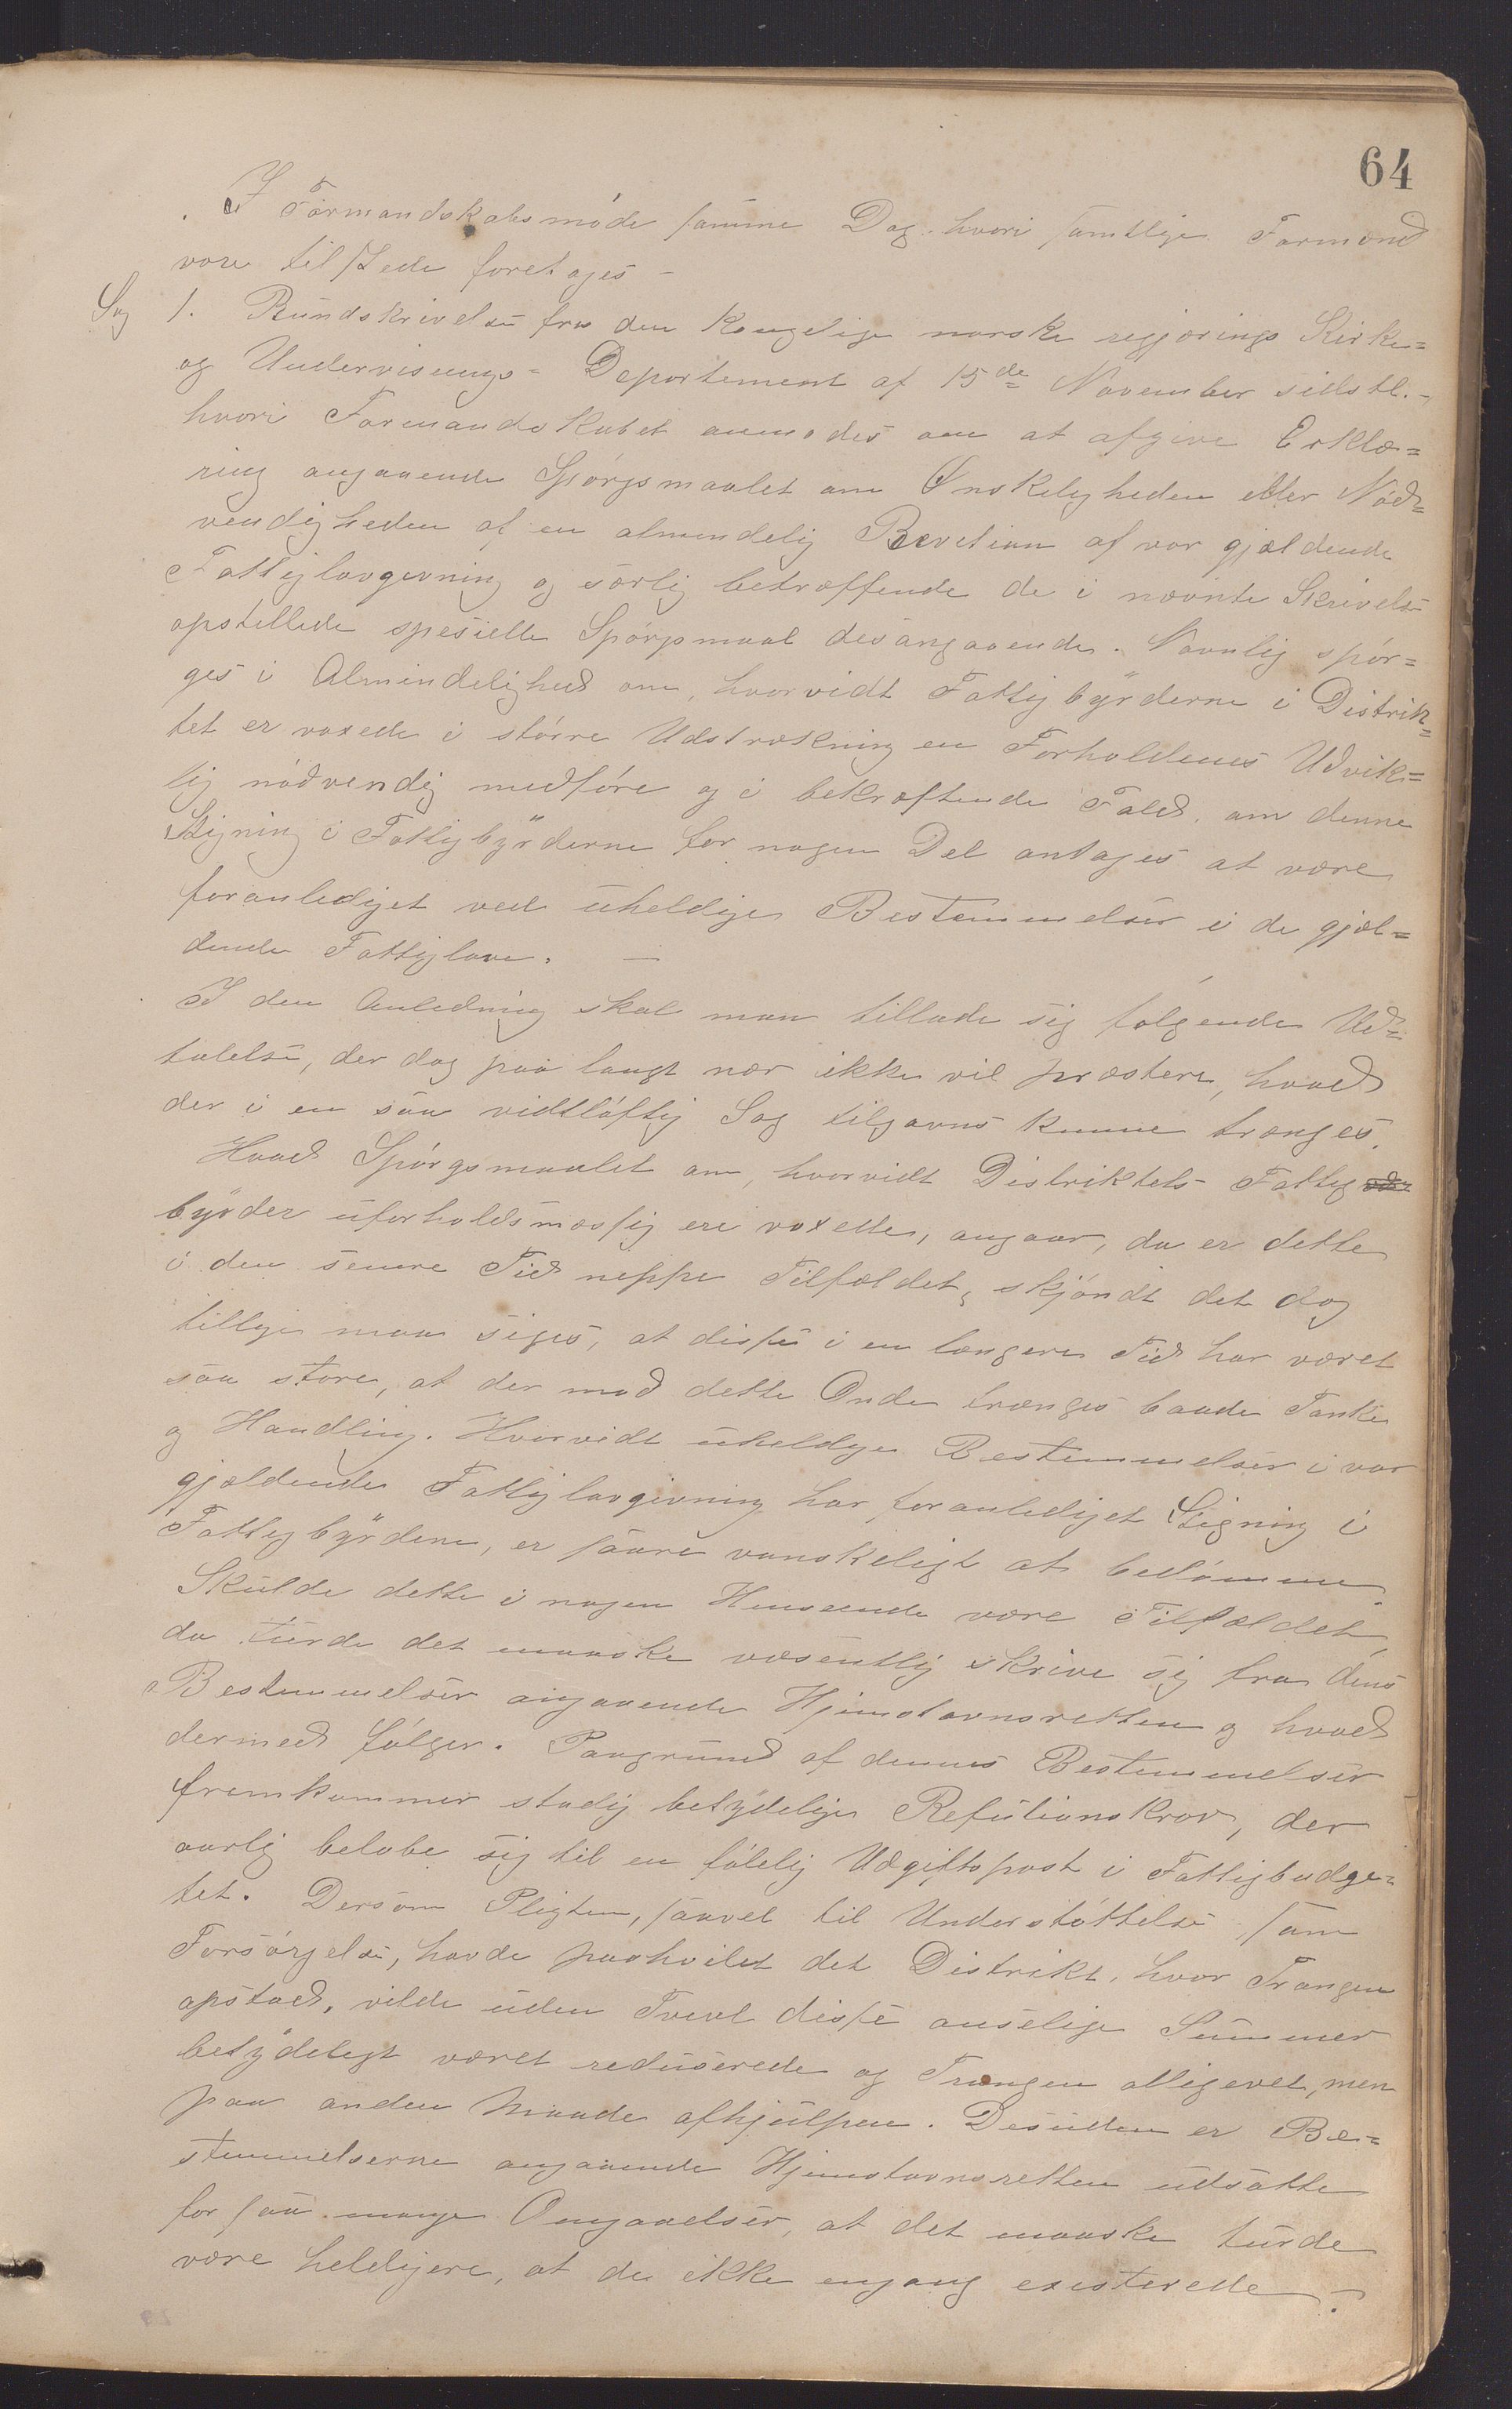 64
I Formandskabsmöde samme Dag hvori samtlige Formænd
vare tilstede foretoges –
Sag 1. Rundskrivelse fra den Kongelige norske regjærings Kirke=
og Undervisnings= Departement af 15de November sidstl. –
hvori Formandskabet anmodes om at afgive Erklæ=
ring angaaende Spörgsmaalet om Ønskeligheden eller Nöd=
vendigheden af en almindelig Revision af vor gjældende
Fattiglovgivning og særlig betræffende de i nævnte Skrivelse
opstillede spesielle Spörgsmaal desangaaende. Navnlig spör=
ges i Almindelighed om, hvorvidt Fattigbyrderne i Distrik=
tet er voxede i större Udstrækning en Forholdenes Udvik=
lig nödvendig medföre og i bekræftende Fald, om denne
Stigning i Fattigbyrderne for nogen Del antages at være
foranlediget ved uheldige Bestemmelser i de gjæl=
dende Fattiglove. –
I den Anledning skal man tillade sig følgende Ud=
talelse, der dog paa langt nær ikke vil præstere, hvad
der i en saa vidtløftig Sag tilgavns kunne trænges.
Hvad Spörgsmaalet om, hvorvidt Distriktets Fattig
byrder uforholdsmæssig ere voxede, angaar, da er dette
i den senere Tid neppe Tilfældet, skjöndt det dog
tillige maa siges, at disse i en længere Tid har været
saa store, at der mod dette Onde trænges baade Tanke
og Handling. Hvorvidt uheldige Bestemmelser i vor
gjældende Fattiglovgivning har foranlediget Stigning i
Fattigbyrdene, er saare vanskeligt at bedömme.
Skulde dette i nogen Henseende være Tilfældet,
da turde det maaske væsentlig skrive sig fra dens
Bestemmelser angaaende Hjemstavnsretten og hvad
dermed følger. Paagrund af dennes Bestemmelser
fremkommer stadig betydelige Refutionskrav, der
aarlig beløbe sig til en fölelig Udgiftspost i Fattigbudge=
tet. Dersom Pligten, saavel til Understöttelse som
Forsörgelse, havde paahvilet det Distrikt, hvor Trangen
opstaad, vilde uden Tvivl disse anselige Summer
betydeligt været reduserede og Trangen alligevel, men
paa anden Maade afhjulpen. Desuden er Be=
stemmelserne angaaende Hjemstavnsretten udsatte
for saa mange Omgaaelser, at det maaske turde
være heldigere, at de ikke engang existerede. –